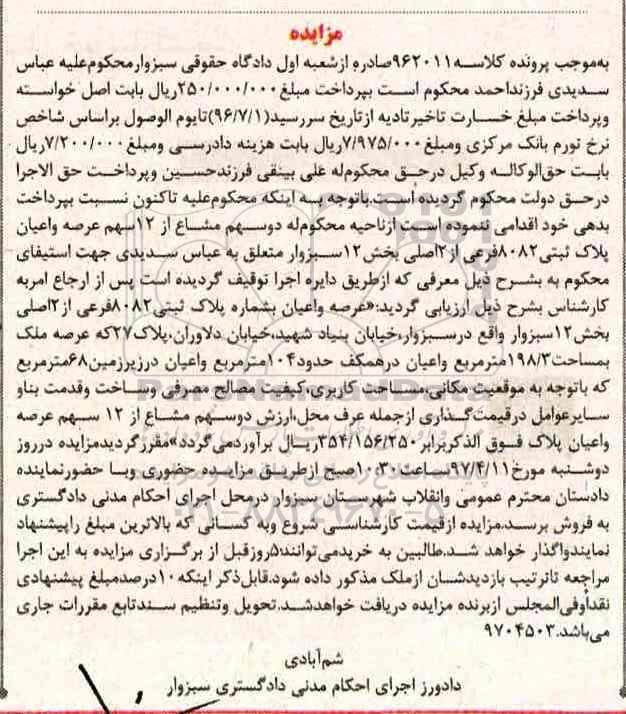 مزایده
به‌موجب پرونده کلاسه۹۶۲۰۱۱صادره ازشعبه اول دادگاه حقوقی سبزوارمحکوم‌علیه عباس
سدیدی فرزنداحمد محکوم است بپرداخت مبلغ۲۵۰/۰۰۰/۰۰۰ریال بابت اصل خواسته
وپرداخت مبلغ خسارت تاخیرتادیه ازتاریخ سررسید(۹۶/۷/۱)تایوم الوصول براساس شاخص
نرخ تورم بانک مرکزی ومبلغ۷/۹۷۵/۰۰۰ریال بابت هزینه دادرسی ومبلغ۷/۲۰۰/۰۰۰ریال
بابت حق‌الوکاله وکیل درحق محکوم‌له علی بینقی فرزندحسین وپرداخت حق الاجرا
درحق دولت محکوم گردیده است.باتوجه به اینکه محکوم‌علیه تاکنون نسبت بپرداخت
بدهی خود اقدامی ننموده است ازناحیه محکوم‌له دوسهم مشاع از ۱۲سهم عرصه واعیان
پلاک ثبتی۸۰۸۲فرعی از۲اصلی بخش۱۲سبزوار متعلق به عباس سدیدی جهت استیفای
محکوم به بشرح ذیل معرفی که ازطریق دایره اجرا توقیف گردیده است پس از ارجاع امربه
کارشناس بشرح ذیل ارزیابی گردید:«عرصه واعیان بشماره پلاک ثبتی۸۰۸۲فرعی از۲اصلی
بخش۱۲سبزوار واقع درسبزوار،خیابان بنیاد شهید،خیابان دلاوران،پلاک۲۷که عرصه ملک
بمساحت۱۹۸/۳مترمربع واعیان درهمکف حدود۱۰۴مترمربع واعیان درزیرزمین۶۸مترمربع
که باتوجه به موقعیت مکانی،مساحت کاربری،کیفیت مصالح مصرفی وساخت وقدمت بناو
سایرعوامل درقیمت‌گذاری ازجمله عرف محل،ارزش دوسهم مشاع از ۱۲ سهم عرصه
واعیان پلاک فوق الذکربرابر۳۵۴/۱۵۶/۲۵۰ریال برآوردمی‌گردد»مقررگردیدمزایده درروز
دوشنبه مورخ۹۷/۴/۱۱ساعت۱۰:۳۰صبح ازطریق مزایده حضوری وبا حضورنماینده
دادستان محترم عمومی وانقلاب شهرستان سبزوار درمحل اجرای احکام مدنی دادگستری
به فروش برسد.مزایده ازقیمت کارشناسی شروع وبه کسانی که بالاترین مبلغ راپیشنهاد
نمایندواگذار خواهد شد.طالبین به خریدمی‌توانند۵روزقبل از برگزاری مزایده به این اجرا
مراجعه تاترتیب بازدیدشان ازملک مذکور داده شود.قابل‌ذکر اینکه۱۰درصدمبلغ پیشنهادی
نقداًوفی‌المجلس ازبرنده مزایده دریافت خواهدشد.تحویل وتنظیم سندتابع مقررات جاری
می‌باشد.۹۷۰۴۵۰۳
شم‌آبادی
دادورز اجرای احکام مدنی دادگستری سبزوار